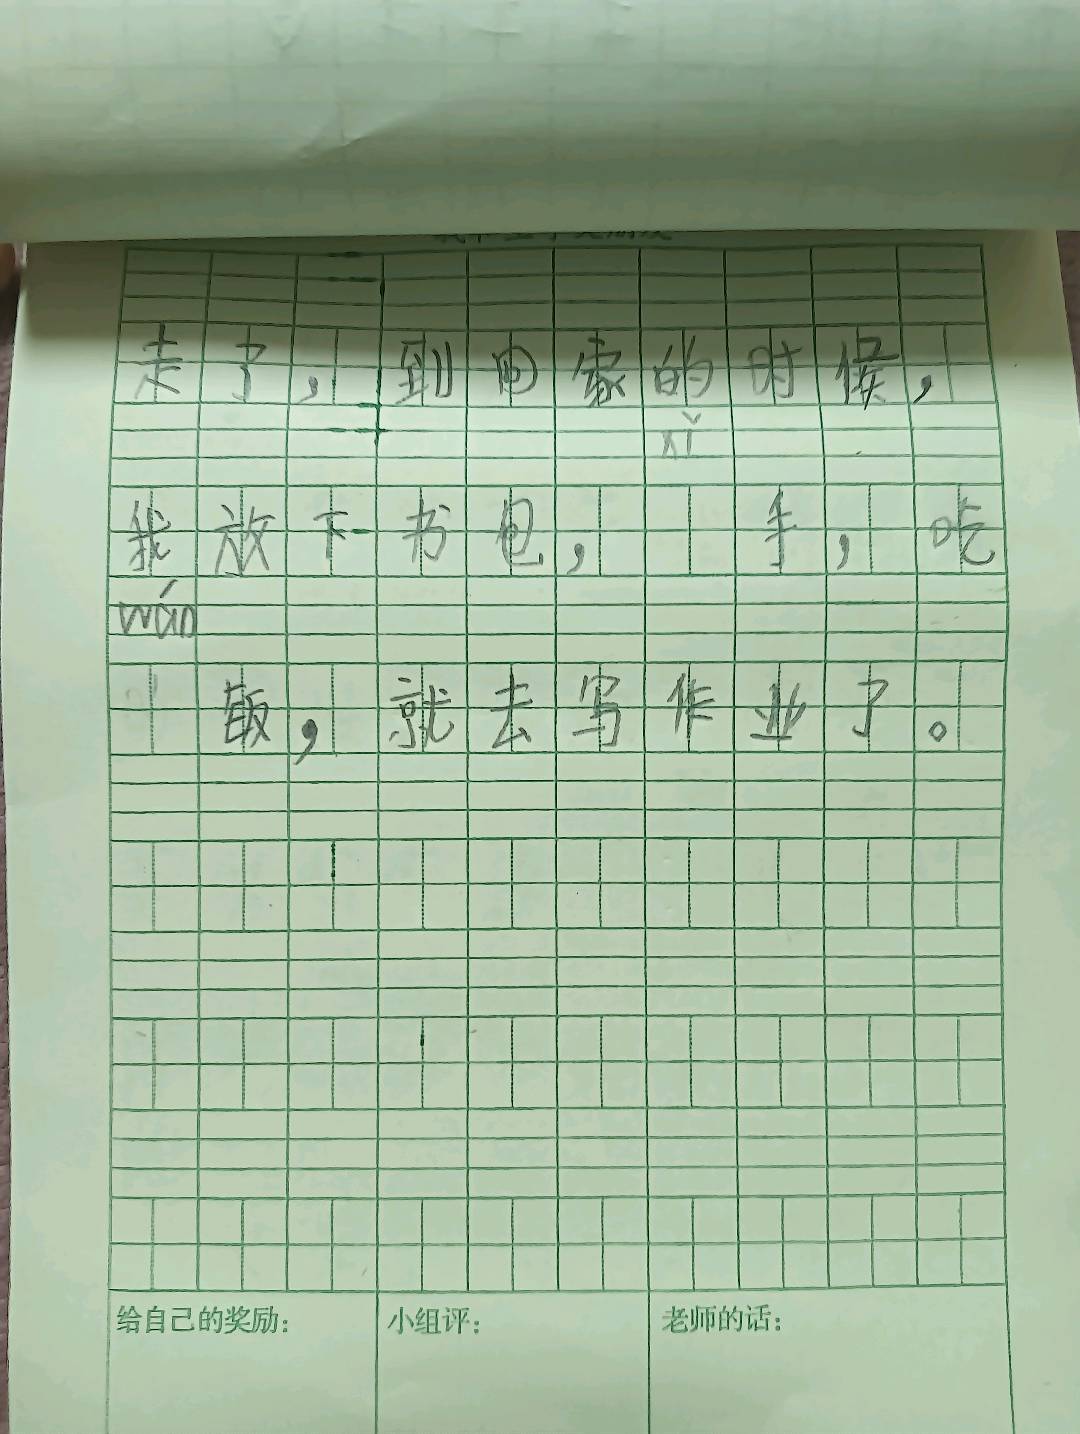 走了，到回家的时候，
xǐ
我放下书包，手，吃
wán
饭，就去写作业了。
给自己的奖励：
小组评：
老师的话：